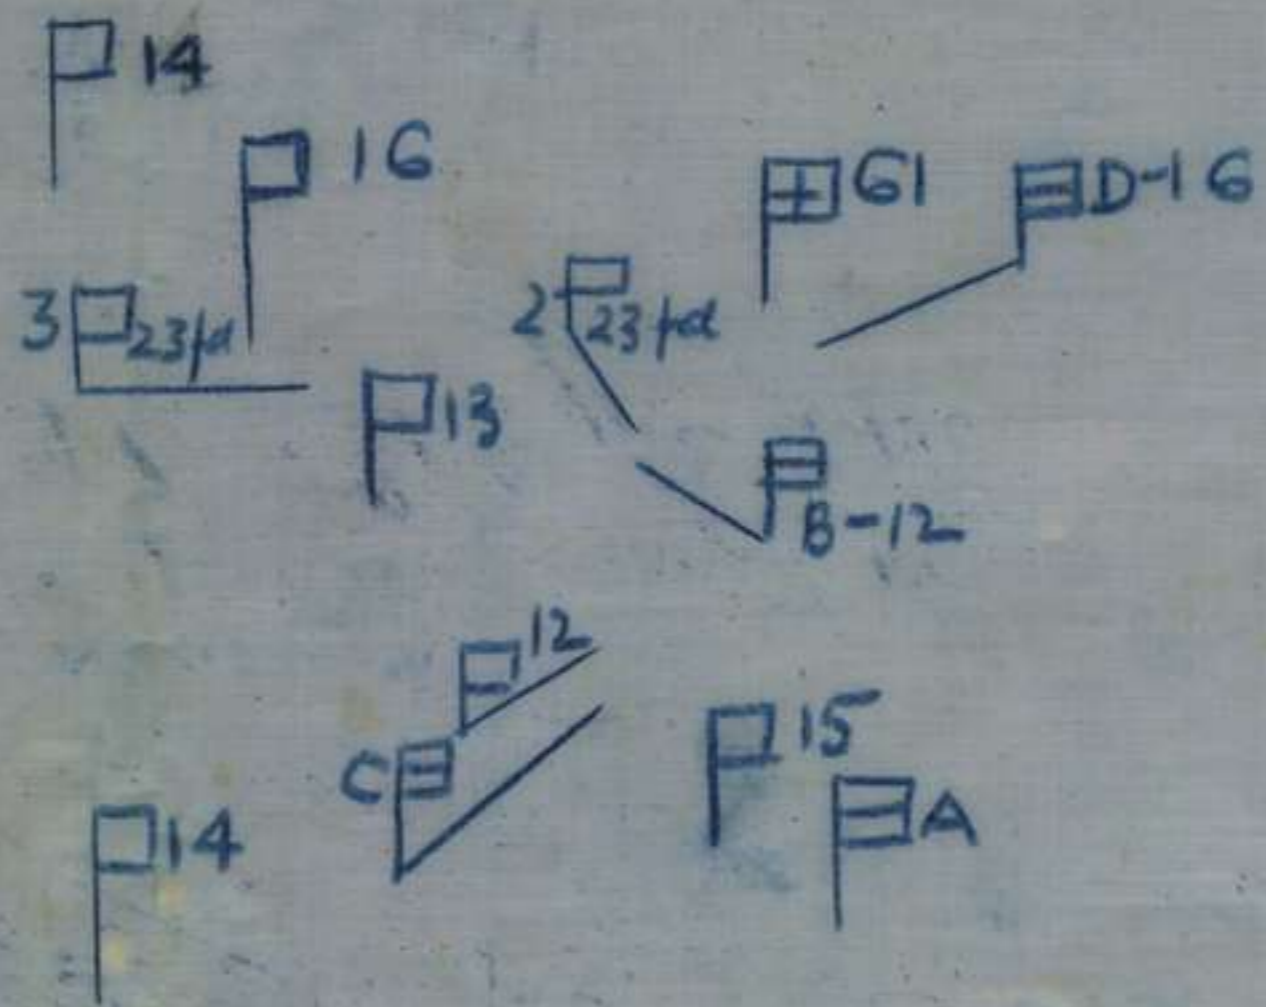 14
16
61
D-16
3
23/d
2
23/d
13
B-12
12
C
15
14
A